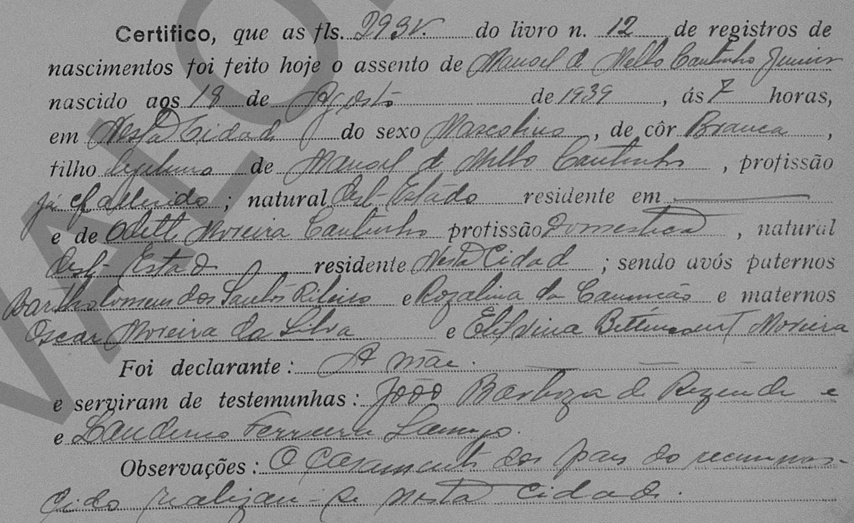 Certifico, que as fls. 293v. do livro n. 12 de registros de
nascimentos foi feito hoje o assento de Manoel de Mello Coutinho Junior
nascido aos 18 de Agosto de 1939, ás 7 horas,
em Nesta Cidade do sexo Masculino, de côr Branca,
filho legitimo de Manoel de Mello Coutinho, profissão
já fallecido; natural Dest Estado residente em
e de Odette Moreira Coutinho profissão Domestica, natural
Dest Estado residente Nesta Cidade; sendo avós paternos
Bartholomeu dos Santos Ribeiro e Rozalina da Conceição e maternos
Oscar Moreira da Silva e Bittencourt Moreira
Foi declarante: A mãe.
e serviram de testemunhas: João Barboza de Rezende e
e Ferreira
Observações: O casamento dos paes do recemnas-
cido realizou-se nesta cidade.